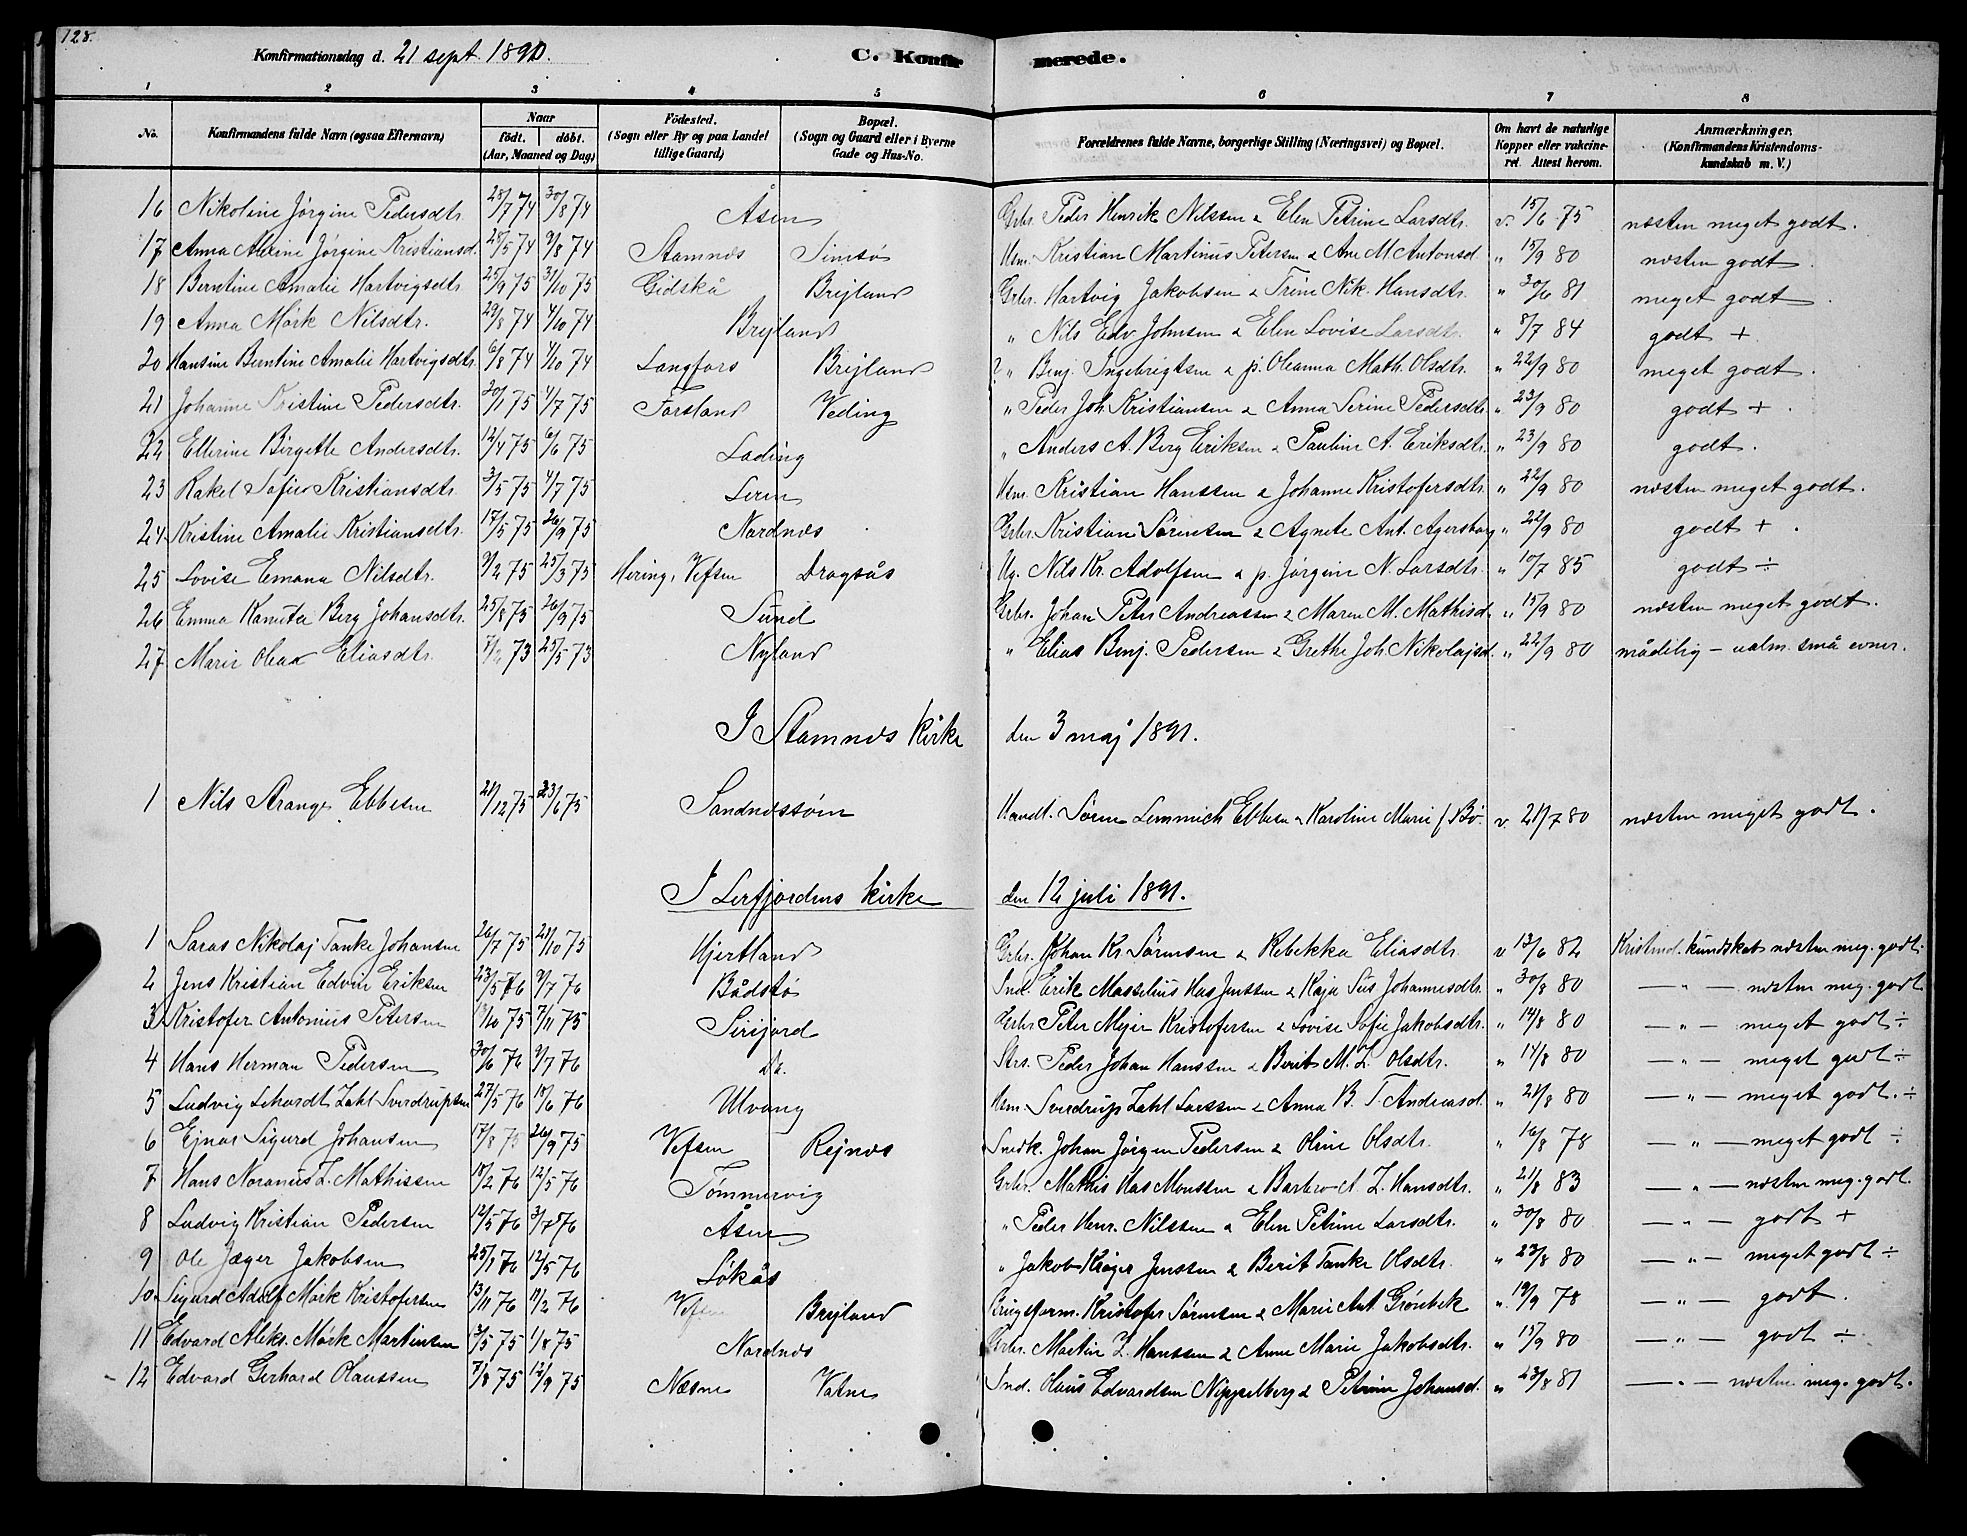 128.
Konfirmationsdag d. 21 sept. 1890. C. Konfirmerede.
1 2 3 4 5 6 7 8
No. Konfirmandens fulde Navn (ogsaa Efternavn) Naar födt. döbt. (Aar, Maaned og Dag) Födested. (Sogn eller By og paa Landet tillige Gaard) Bopæl. (Sogn og Gaard eller i Byerne Gade og Hus-No. Forældrenes fulde Navne, borgerlige Stilling (Næringsvei) og Bopæl. Om havt de naturlige Kopper eller vakcineret. Attest herom. Anmærkninger. (Konfirmandens Kristendomskundskab m. V.)
16 Nikoline Jørgine Pedersdtr. 28/7 74 30/8 74 Åsen Grbr. Peder Henrik Nilssen & Elen Petrine Larsdtr. v. 15/6 75 næsten meget godt.
17 Anna Jørgine Kristiansd. 28/5 74 9/8 74 Stamnes Simsø Hsm. Kristian Martinus Petersen & Ane M. Antonsd. " 15/9 80 næsten godt.
18 Berntine Amalie Hartvigsdtr. 25/9 75 31/10 75 Gidskå Brejland Grbr. Hartvig Jakobsen & Trine Nik. Hansdtr. " 30/6 81 meget godt.
19 Anna Mørk Nilsdtr. 29/8 74 4/10 74 Brejland " Nils Edv. Johnsen & Elen Lovise Larsdtr. " 8/7 84 godt +
20 Hansine Berntine Amalie Hartvigsdtr. 6/8 74 4/10 74 Langfors Brejland ? " Benj. Ingebrigtsen & p. Oleanna Math. Olsdtr. " 22/9 80 meget godt.
21 Johanne Kristine Pedersdtr. 30/1 75 4/7 75 Forsland Veding " Peder Joh. Kristiansen & Anna Serine Pedersdtr. " 23/9 80 godt + .
22 Ellerine Birgette Andersdtr. 12/4 75 6/6 75 Lading " Anders A. Berg Eriksen & Pauline A. Eriksdtr. " 23/9 80 godt.
23 Rakel Sofie Kristiansdtr. 3/5 75 4/7 75 Leren Hsm. Kristian Hanssen & Johanne Kristofersdtr. " 22/9 80 næsten meget godt.
24 Kristine Amalie Kristiansdtr. 17/5 75 26/9 75 Nordnes Grbr. Kristian Sørensen & Agnete Ant. Agersborg " 22/9 80 godt + .
25 Lovise Emana Nilsdtr. 9/2 75 25/3 75 Hering, Vefsen Dragsås Ug. Nils Kr. Adolfsen & p. Jørgine N. Larsdtr. " 10/7 85 godt ÷
26 Emma Kanuta Berg Johansdtr. 25/8 75 26/9 75 Sund Grbr. Johan Peter Andreassen & Maren M. Mathisd. " 15/9 80 næsten meget godt.
27 Marie Oleaa Eliasdtr. 73 25/5 73 Nyland " Elias Benj. Pedersen & Grethe Joh. Nikolajsd. " 22/9 80 mådelig – ualm. små evner.
I Stamnes Kirke den 3 maj 1891.
1 Nils Strange Ebbesen 21/12 75 23/6 75 Sandnessøen Handl. Søren Lemmich Ebbesen & Karoline Marie f. Bø. v. 21/7 80 næsten meget godt.
I Lerfjordens kirke den 12 juli 1891.
1 Saras Nikolaj Tanke Johansen 26/7 75 21/10 75 Hjertland Grbr. Johan Kr. Sørensen & Rebekka Eliasdtr. v 13/6 82 Kristend. kundskab næsten meg. godt.
2 Jens Kristian Edvin Eriksen 23/5 76 9/7 76 Bådstø Ind. Erik Masselius Has Jenssen & Kaja Sus. Johannesdtr. " 30/8 80 — " — næsten meg. godt
3 Kristofer Antonius Petersen 13/10 75 7/11 75 Serijord Grbr. Peter Mejer Kristofersen & Lovise Sofie Jakobsdtr. " 14/8 80 — " — meget godt ÷
4 Hans Herman Pedersen 30/6 76 9/7 76 do. Strs. Peder Johan Hanssen & Berit M. Z. Olsdtr. " 14/8 80 — " — meget godt ÷
5 Ludvig Sehardt Zahl Sverdrupsen 27/5 76 18/6 76 Ulvang Hsm. Sverdrup Zahl Larssen & Anna B. T. Andreasd. " 21/8 80 — " — meget godt. ÷
6 Ejnar Sigurd Johansen 17/8 75 26/9 75 Vefsen Rejnes Snedk. Johan Jørgen Pedersen & Oline Olsdtr. " 16/8 78 — " — meget godt ÷
7 Hans Noranius Z. Mathissen 18/2 76 12/5 76 Tømmervig Grbr. Mathis Has Monssen & Barbro A. Z. Hansdtr. " 21/8 83 — " — næsten meg. godt.
8 Ludvig Kristian Pedersen 12/5 76 3/7 76 Åsen " Peder Henr. Nilssen & Elen Petrine Larsdtr. " 30/8 80 — " — godt +
9 Ole Jæger Jakobsen 25/1 76 12/5 76 Løkås " Jakob Krøger Jenssen & Berit Tanke Olsdtr. " 23/8 80 — " — meget godt ÷
10 Sigurd Adolf Mørk Kristofersen 13/11 76 11/2 76 Vefsen Brejland Kristofer Sørensen & Marie Ant. Grønbek " 19/9 78 — " — godt.
11 Edvard Aleks. Mørk Martinsen 13/5 75 1/8 75 Nordnes Grbr. Martin Z. Hanssen & Anne Marie Jakobsdtr. " 15/9 80 — " — godt ÷
12 Edvard Gerhard Olaussen 7/8 75 12/9 75 Næsne Vatne Ind. Olaus Edvardsen Nippelberg & Petrine Johansd. " 23/8 81 — " — næsten meg. godt.